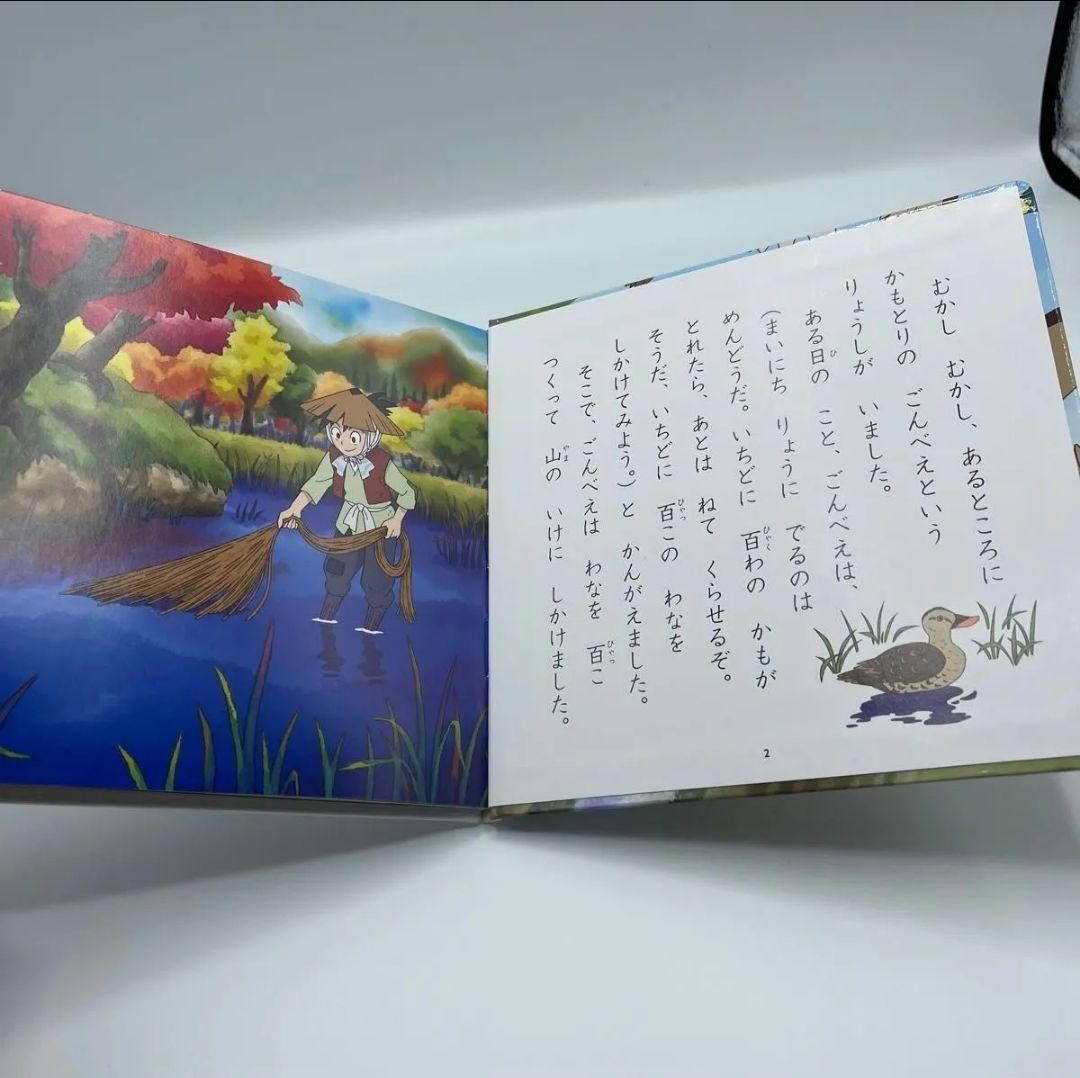 むかし むかし、あるところに
かもとりの ごんべえという
りょうしが いました。
ある日の こと、ごんべえは、
(まいにち りょうに でるのは
めんどうだ。いちどに 百わの かもが
とれたら、あとは ねて くらせるぞ。
そうだ、いちどに 百この わなを
しかけてみよう。)と かんがえました。
そこで、ごんべえは わなを 百こ
つくって 山の いけに しかけました。
2